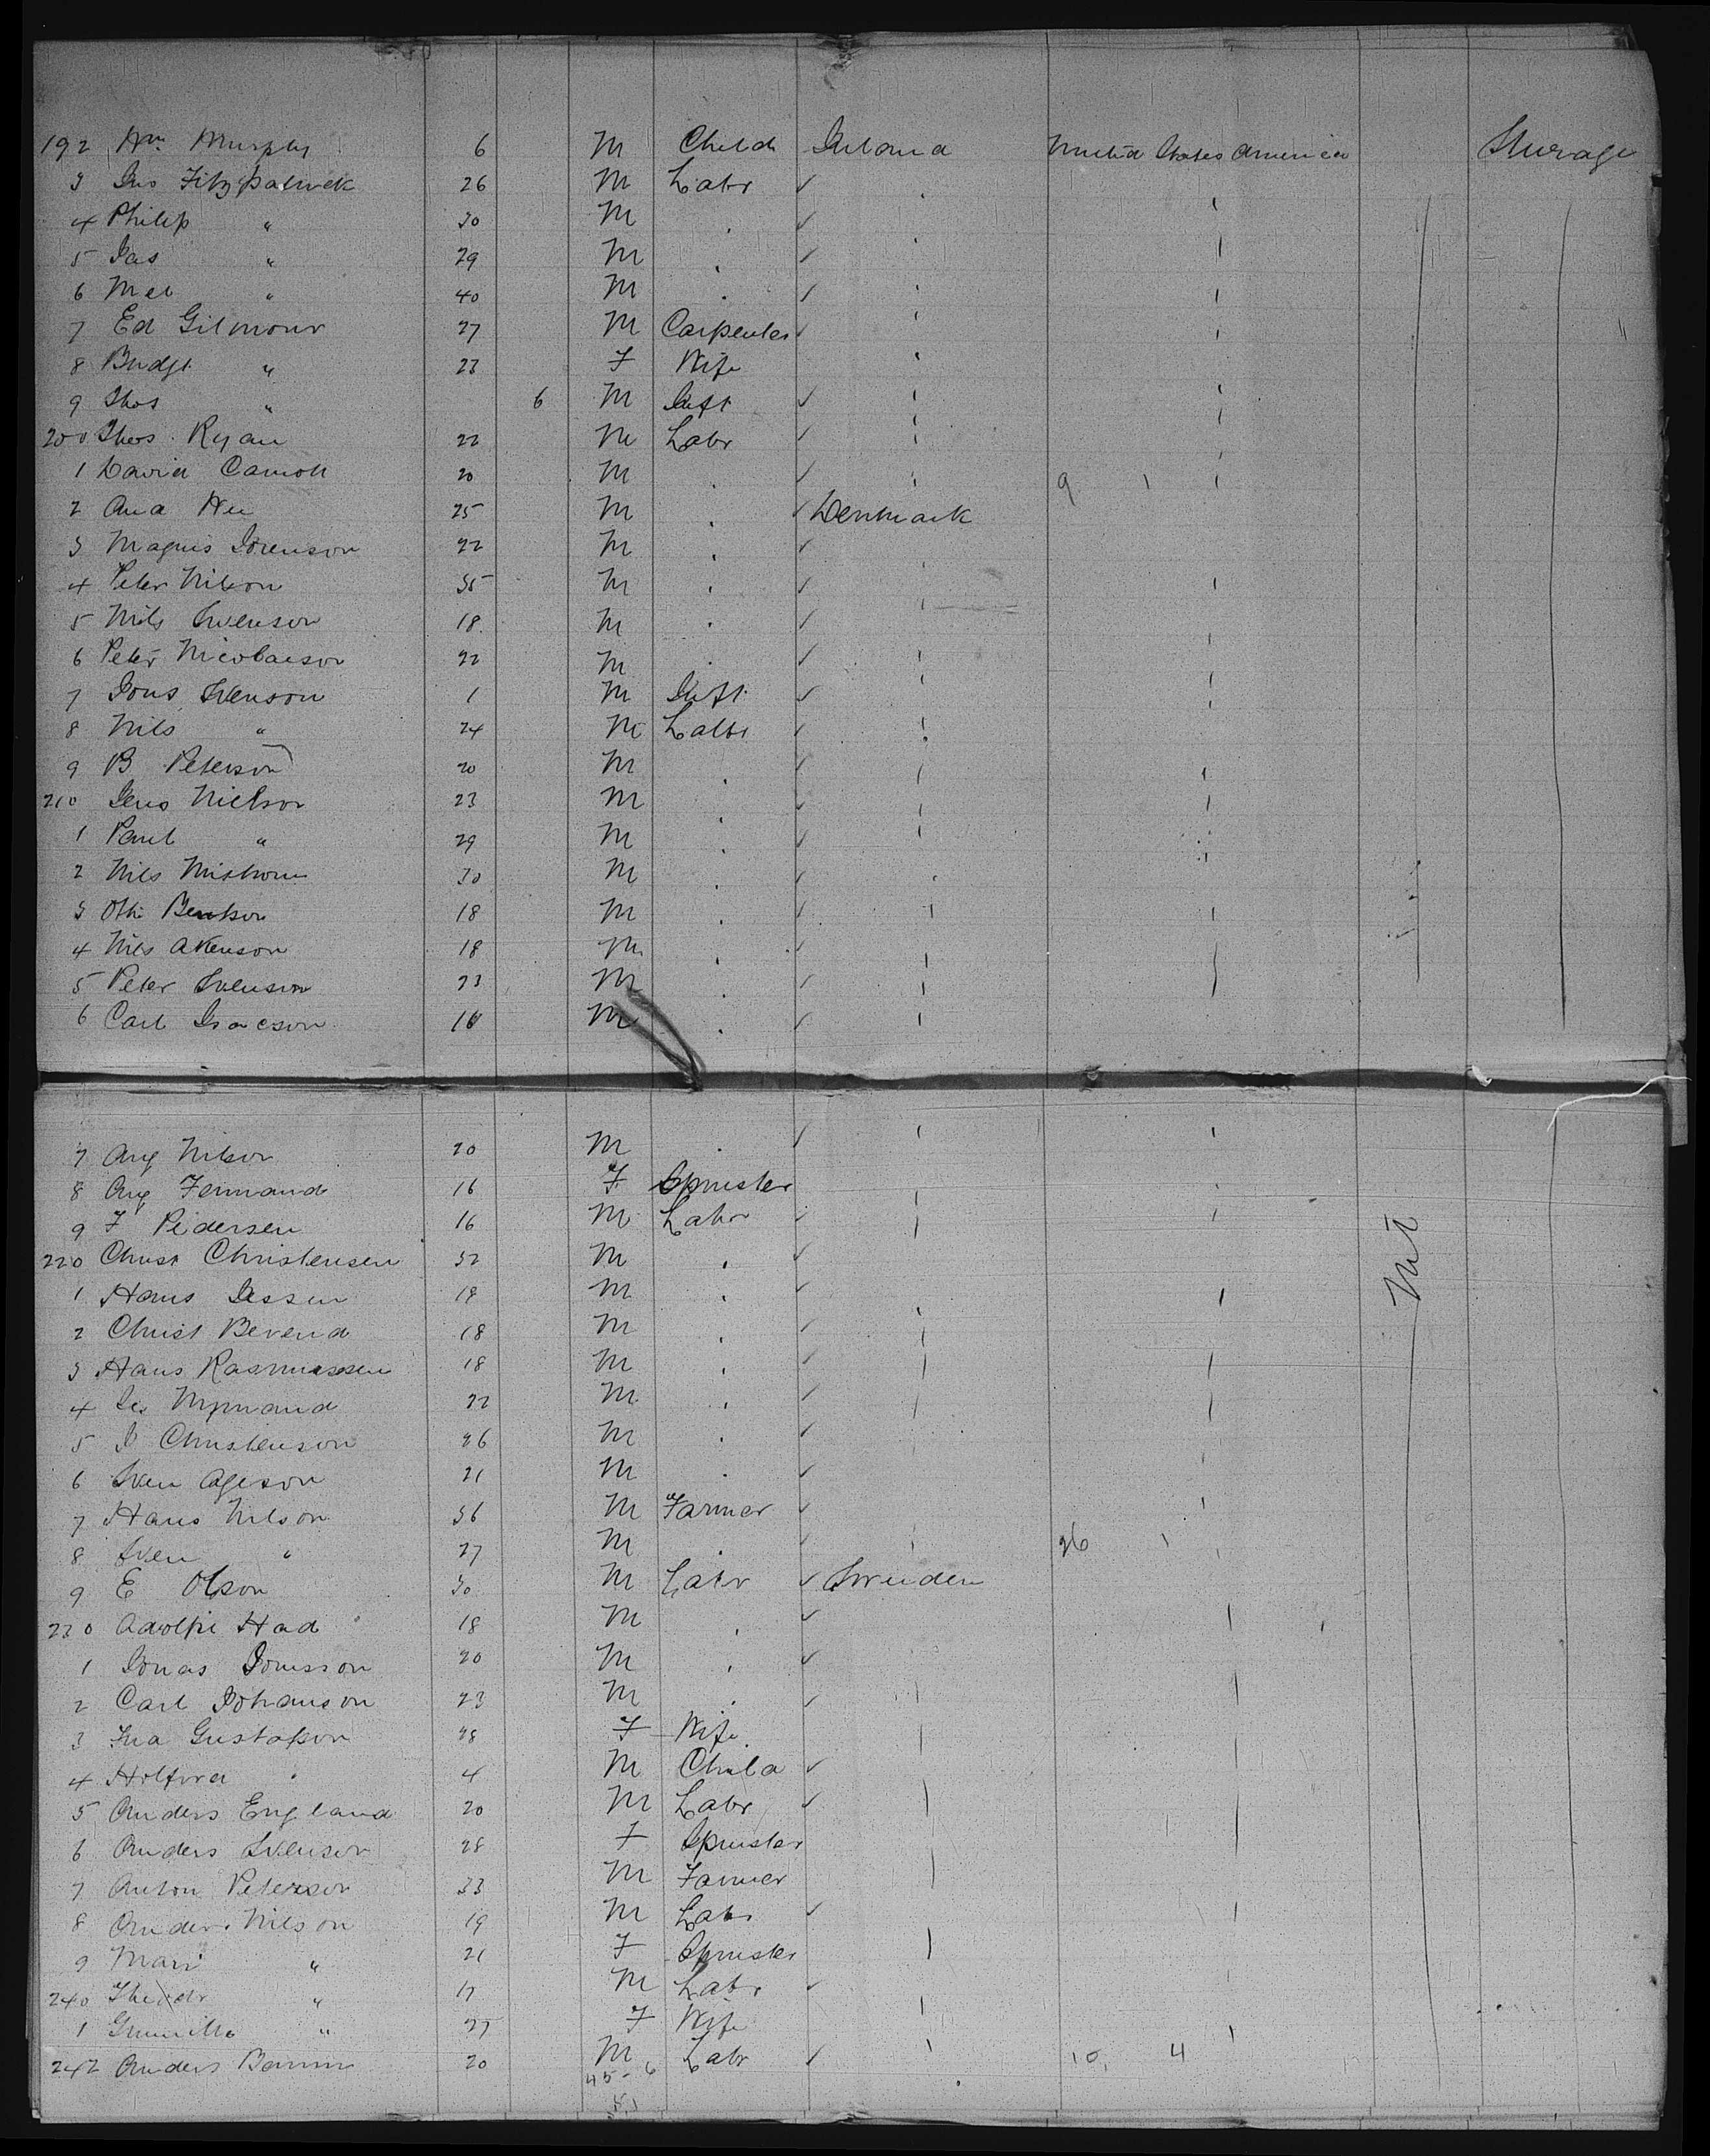 192 Wm Murphy 6 M Child Ireland United States America Steerage
3 Jno Fitzpatrick 26 M Labr ✓
4 Philip " 30 M ✓
5 Jas " 29 M ✓
6 Mcl " 40 M ✓
7 Ed Gilmour 27 M Carpenter ✓
8 Bridgt " 23 F Wife
9 Thos " 6 M Inft ✓
200 Thos Ryan 22 M Labr ✓
1 David Carroll 20 M ✓ 9 1
2 25 M ✓ Denmark
3 Magnus Sorenson 22 M ✓
4 Peter Nilson 35 M ✓
5 Nils Svenson 18 M ✓
6 Peter Nicolaeson 22 M ✓
7 Jons Svenson 1 M Inft ✓
8 Nils " 24 M Labr ✓
9 B Peterson 20 M ✓
210 Jens Nielson 23 M ✓
1 Paul " 29 M ✓
2 Nils 30 M ✓
3 Otto Bentson 18 M ✓
4 Nils Akenson 18 M ✓
5 Peter Svenson 23 M ✓
6 Carl Isacson M ✓
7 Aug Nilson 20 M ✓
8 Aug Fennand 16 F Spinster
9 F Pedersen 16 M Labr ✓
220 Christ Christensen 32 M ✓
1 Hans Jessen 18 M ✓
2 Christ Berend 18 M ✓
3 Hans Rasmussen 18 M ✓
4 Nymand 22 M ✓
5 J Christenson 26 M ✓
6 Sven Ageson 21 M ✓
7 Hans Nilson 36 M Farmer ✓
8 Sven " 27 M ✓ 26 1
9 E Olson 30 M Labr ✓ Sweden
230 Adolph Had 18 M ✓
1 Jonas Jonsson 20 M ✓
2 Carl Johanson 23 M ✓
3 Ina Gustafson 28 F Wife
4 Holfrid " 4 M Child ✓
5 Anders England 20 M Labr ✓
6 Anders Svenson 28 F Spinster
7 Anton Peterson 33 M Farmer
8 Anders Nilson 19 M Labr ✓
9 Mari " 21 F Spinster
240 Theodr " 17 M Labr ✓
1 Gunilla " 27 F Wife
242 Anders 20 M Labr ✓ 10 4
45 - 6